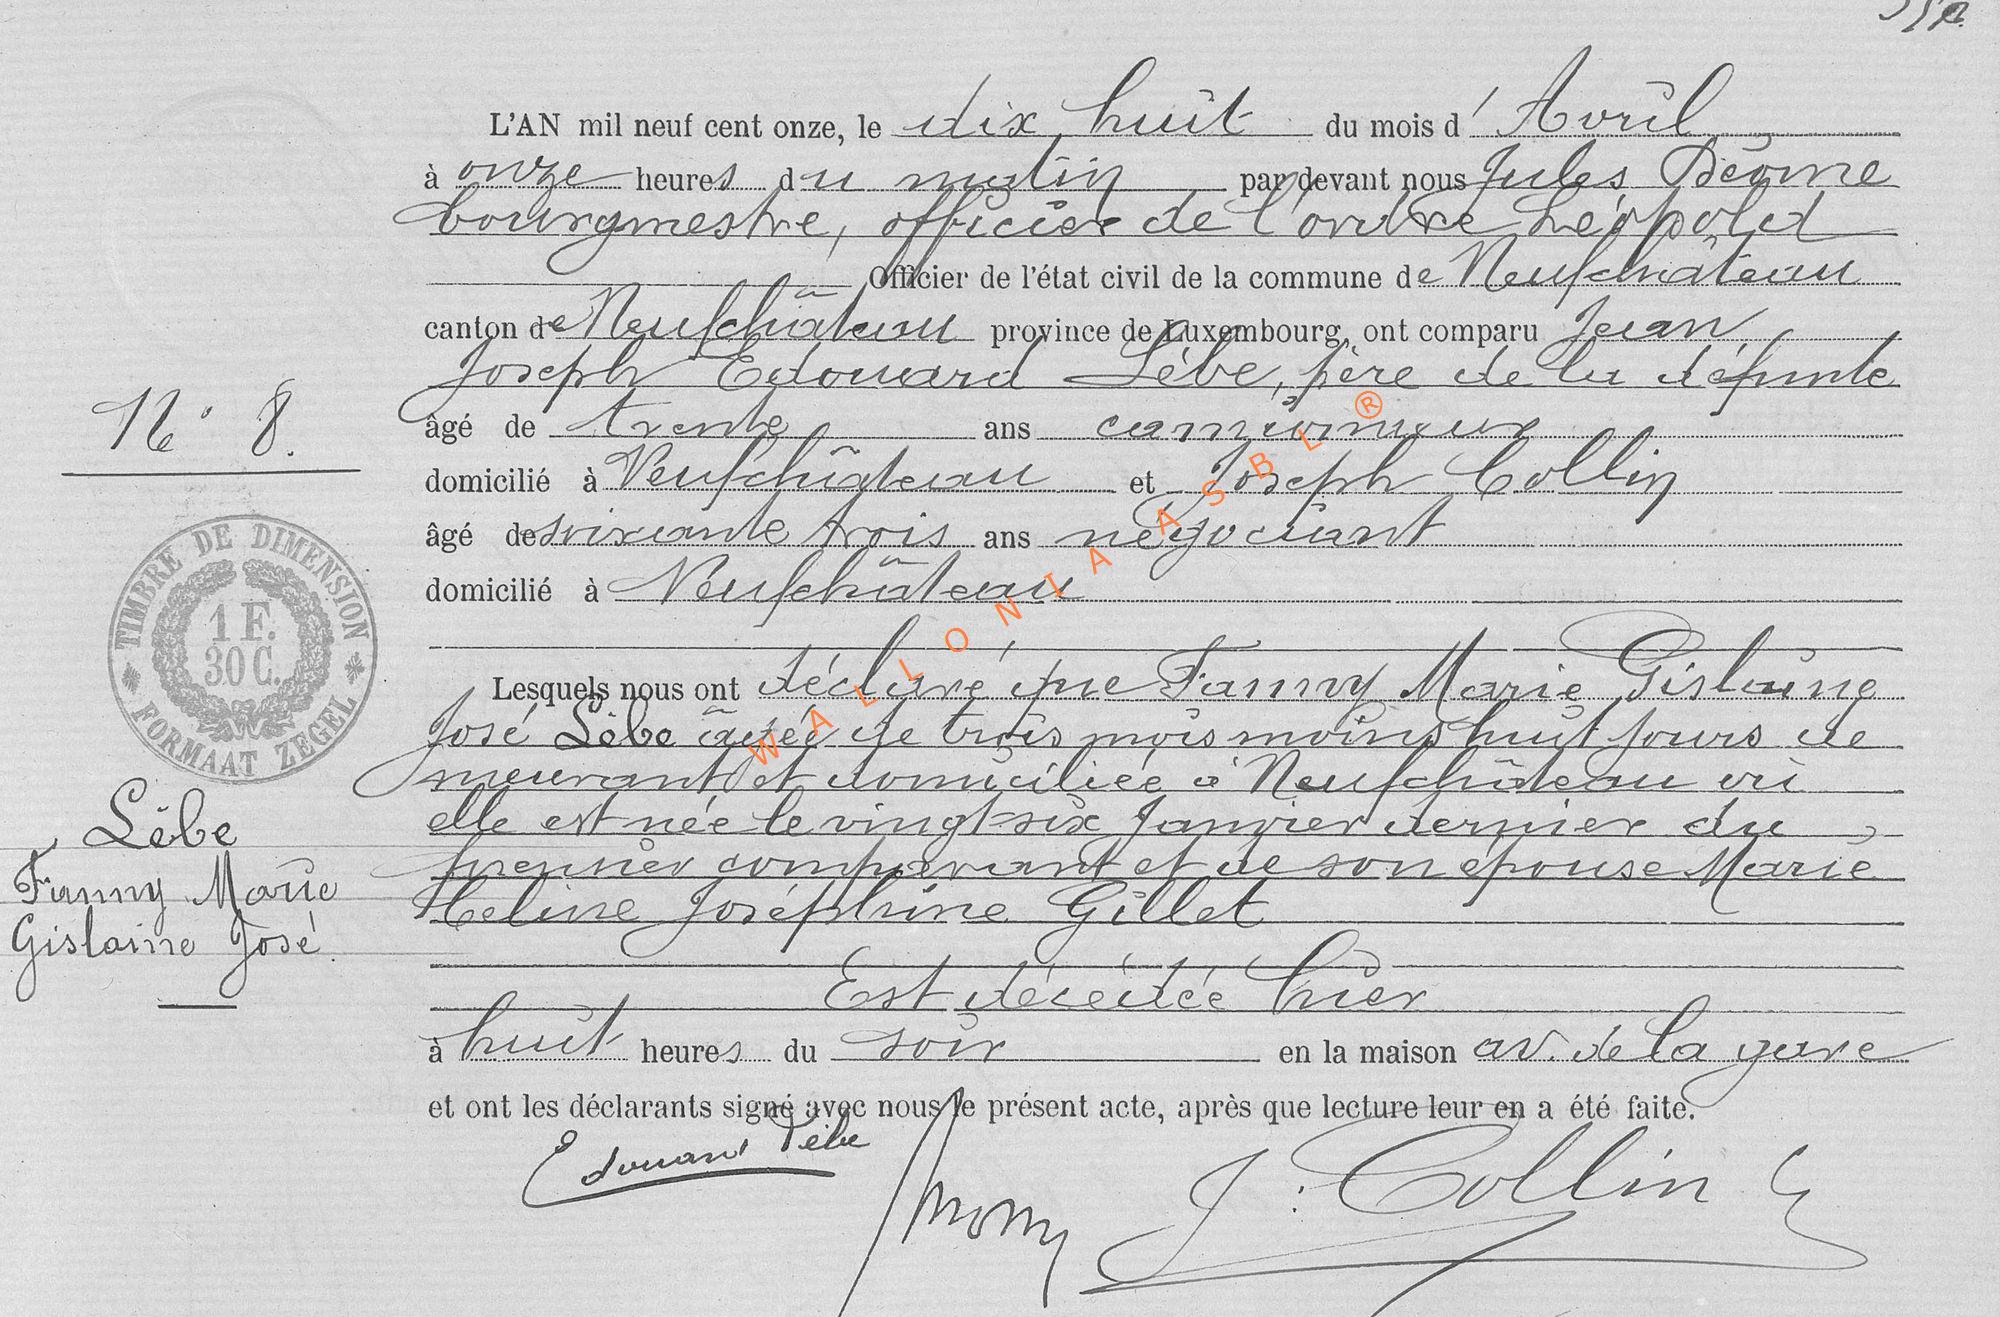 L'AN mil neuf cent onze, le dix huit du mois d'Avril
à onze heures du matin par devant nous Jules Déome
bourgmestre, officier de l'ordre Léopold
Officier de l'état civil de la commune de Neufchâteau
canton de Neufchâteau province de Luxembourg, ont comparu Jean
Joseph Edouard Lèbe, père de la défunte
âgé de trente ans camionneur
domicilié à Neufchâteau et Joseph Collin
âgé de soixante trois ans négociant
domicilié à Neufchâteau
Lesquels nous ont déclaré que Fanny Marie Gislaine
José Lèbe âgée de trois mois moins huit jours de
meurant et domiciliée à Neufchâteau où
elle est née le vingt-six Janvier dernier du
premier comparant et de son épouse Marie
Celine Joséphine Gillet
Est décédée hier
à huit heures du soir en la maison av. de la gare
et ont les déclarants signé avec nous le présent acte, après que lecture leur en a été faite.
Edouard Lèbe
J. Collin
N° 8.
TIMBRE DE DIMENSION
1 F.
30 C.
FORMAAT ZEGEL
Lèbe
Fanny Marie
Gislaine José
WALLONIA ASBL ®